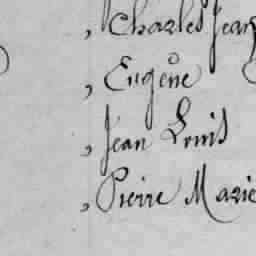 , Charles Jean
, Eugène
, Jean Louis
, Pierre Marie